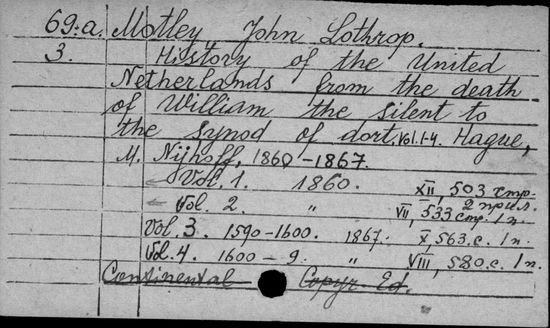 69.a. Motley, John Lothrop.
3. History of the United
Netherlands from the death
of William the Silent to
the synod of dort. Vol.1-4. Hague,
M. Nijhoff, 1860-1867.
Vol. 1. 1860. XII, 503 стр.
2 прил.
Vol. 2. " VII, 533 стр. 1 п.
Vol. 3. 1590-1600. 1867. X, 563.с. 1 п.
Vol. 4. 1600-9. " VIII, 580.с. 1 п.
Continental Copyr. Ed.